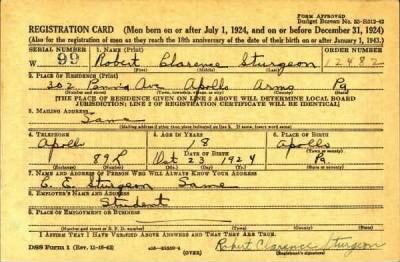 FORM APPROVED
Budget Bureau No. 33-R012-42
REGISTRATION CARD (Men born on or after July 1, 1924, and on or before December 31, 1924)
(Also for the registration of men as they reach the 18th anniversary of the date of their birth on or after January 1, 1943.)
SERIAL NUMBER 1. NAME (Print) ORDER NUMBER
W 99 Robert Clarence Sturgeon 12482
(First) (Middle) (Last)
2. PLACE OF RESIDENCE (Print)
302 Ave Apollo Arms Pa
(Number and street) (Town, township, village, or city) (County) (State)
[THE PLACE OF RESIDENCE GIVEN ON LINE 2 ABOVE WILL DETERMINE LOCAL BOARD
JURISDICTION; LINE 2 OF REGISTRATION CERTIFICATE WILL BE IDENTICAL]
3. MAILING ADDRESS
Same
[Mailing address if other than place indicated on line 2. If same, insert word same]
4. TELEPHONE 5. AGE IN YEARS 6. PLACE OF BIRTH
Apollo 18 Apollo
DATE OF BIRTH (Town or county)
89L Oct 23 1924 Pa.
(Exchange) (Number) (Mo.) (Day) (Yr.) (State or country)
7. NAME AND ADDRESS OF PERSON WHO WILL ALWAYS KNOW YOUR ADDRESS
C. E. Sturgeon Same
8. EMPLOYER'S NAME AND ADDRESS
Student
9. PLACE OF EMPLOYMENT OR BUSINESS
(Number and street or R. F. D. number) (Town) (County) (State)
I AFFIRM THAT I HAVE VERIFIED ABOVE ANSWERS AND THAT THEY ARE TRUE.
DSS Form 1 (Rev. 11-16-42) (OVER) Robert Clarence Sturgeon